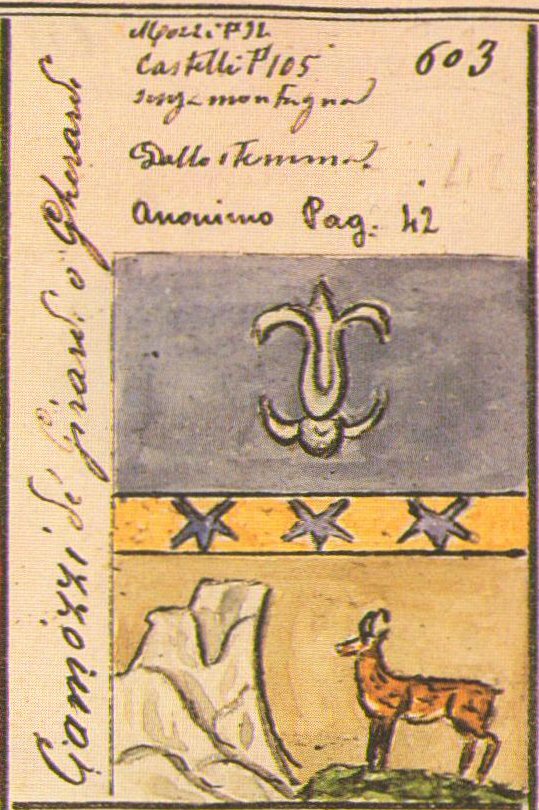 Mozzi P 92
603
Castelli P 105
senza montagna
Dallo stemma.
Anonimo Pag. 42
Gamozzi de Girardi o Gherardi